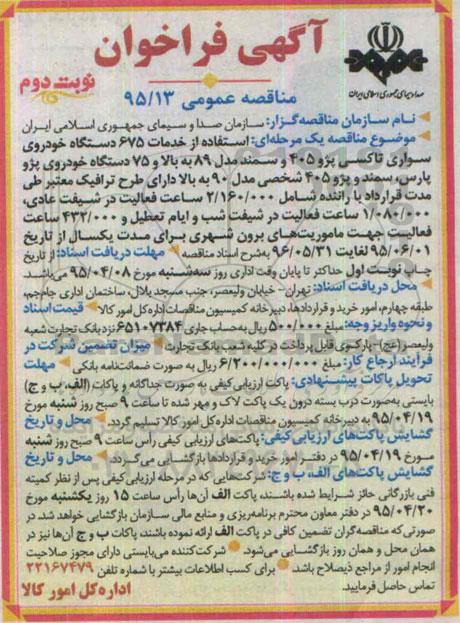 آگهی فراخوان
صدا و سیمای جمهوری اسلامی ایران
نوبت دوم
مناقصه عمومی ۹۵/۱۳
نام سازمان مناقصه‌گزار: سازمان صدا و سیمای جمهوری اسلامی ایران
موضوع مناقصه یک مرحله‌ای: استفاده از خدمات ۶۷۵ دستگاه خودروی
سواری تاکسی پژو ۴۰۵ و سمند مدل ۸۹ به بالا و ۷۵ دستگاه خودروی پژو
پارس، سمند و پژو ۴۰۵ شخصی مدل ۹۰ به بالا دارای طرح ترافیک معتبر طی
مدت قرارداد با راننده شامل ۲/۱۶۰/۰۰۰ ساعت فعالیت در شیفت عادی،
۱/۰۸۰/۰۰۰ ساعت فعالیت در شیفت شب و ایام تعطیل و ۴۳۲/۰۰۰ ساعت
فعالیت جهت ماموریت‌های برون شهری برای مدت یکسال از تاریخ
۹۵/۰۶/۰۱ لغایت ۹۶/۰۵/۳۱ به‌شرح اسناد مناقصه مهلت دریافت اسناد: از تاریخ
چاپ نوبت اول حداکثر تا پایان وقت اداری روز سه‌شنبه مورخ ۹۵/۰۴/۰۸ می‌باشد.
محل دریافت اسناد: تهران - خیابان ولیعصر، جنب مسجد بلال، ساختمان اداری جام‌جم،
طبقه چهارم، امور خرید و قراردادها، دبیرخانه کمیسیون مناقصات اداره کل امور کالا قیمت اسناد
و نحوه واریز وجه: مبلغ ۵۰۰/۰۰۰ ریال به‌حساب جاری ۶۵۱۰۷۳۸۴ نزد بانک تجارت شعبه
ولیعصر (عج) - پارک‌وی قابل پرداخت در کلیه شعب بانک تجارت میزان تضمین شرکت در
فرآیند ارجاع کار: مبلغ ۶/۲۰۰/۰۰۰/۰۰۰ ریال به صورت ضمانت‌نامه بانکی مهلت
تحویل پاکات پیشنهادی: پاکت ارزیابی کیفی به صورت جداگانه و پاکات (الف، ب و ج)
بایستی به‌صورت درب بسته درون یک پاکت لاک و مهر شده تا ساعت ۹ صبح روز شنبه مورخ
۹۵/۰۴/۱۹ به دبیرخانه کمیسیون مناقصات اداره کل امور کالا تسلیم گردد. محل و تاریخ
گشایش پاکت‌های ارزیابی کیفی: پاکت‌های ارزیابی کیفی رأس ساعت ۹ صبح روز شنبه
مورخ ۹۵/۰۴/۱۹ در دفتر امور خرید و قراردادها بازگشایی می‌گردد. محل و تاریخ
گشایش پاکت‌های الف، ب و ج: شرکت‌هایی که در مرحله ارزیابی کیفی پس از نظر کمیته
فنی بازرگانی حائز شرایط شده باشند، پاکت الف آن‌ها رأس ساعت ۱۵ روز یکشنبه مورخ
۹۵/۰۴/۲۰ در دفتر معاون محترم برنامه‌ریزی و منابع مالی سازمان بازگشایی خواهد شد. در
صورتی که مناقصه‌گران تضمین کافی در پاکت الف ارائه نموده باشند، پاکات ب و ج آن‌ها نیز در
همان محل و همان روز بازگشایی می‌شود. شرکت‌کننده می‌بایستی دارای مجوز صلاحیت
انجام امور از مراجع ذیصلاح باشد. برای کسب اطلاعات بیشتر با شماره تلفن ۲۲۱۶۷۴۷۹
تماس حاصل فرمایید. اداره کل امور کالا